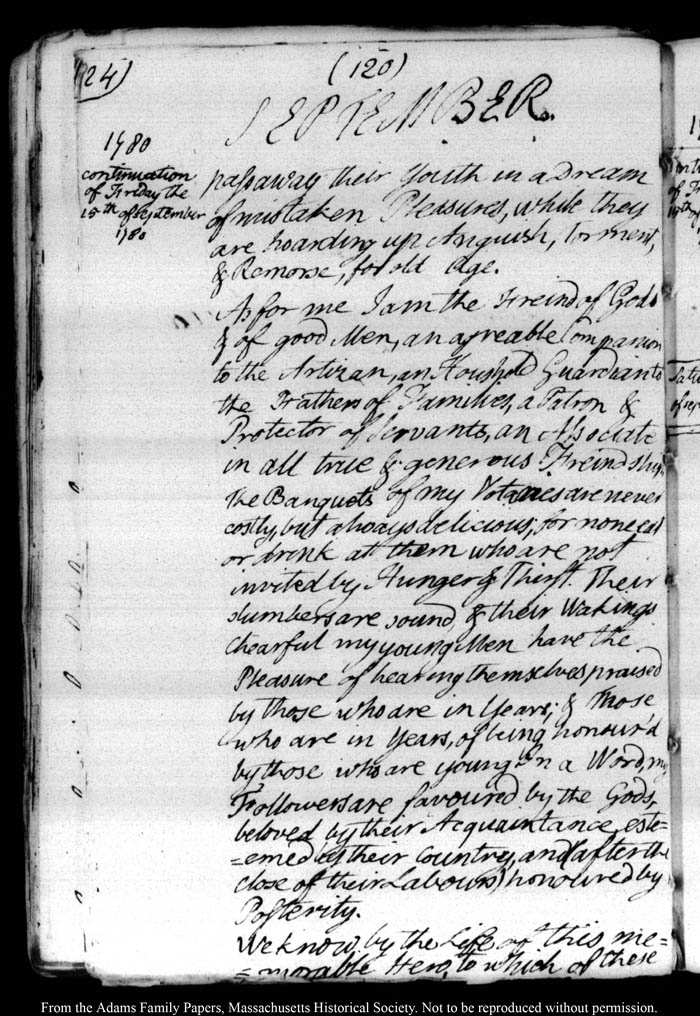 (24)
(120)
SEPTEMBER.
1780
continuation
of Friday the
15th of September
1780
passaway their Youth in a Dream
of mistaken Pleasures, while they
are hoarding up Anguish, torment,
& Remorse, for old Age.
As for me I am the Freind of Gods
& of good Men, an agreable Companion
to the Artizan, an Houshold Guardian to
the Fathers of Families, a Patron &
Protector of Servants, an Associate
in all true & generous Freindship.
The Banquets of my Votaries are never
costly, but always delicious, for none eat
or drink at them who are not
invited by Hunger & Thirst. Their
slumbers are sound, & their Wakings
Chearful my young Men have the
Pleasure of hearing themselves praised
by those who are in Years; & those
who are in Years, of being honour'd
by those who are young In a Word, my
Followers are favoured by the Gods,
beloved by their Acquaintance, este=
=emed by their Country, and (after the
close of their Labours) honoured by
Posterity.
We know, by the Life of this me=
=morable Hero, to which of these
From the Adams Family Papers, Massachusetts Historical Society. Not to be reproduced without permission.